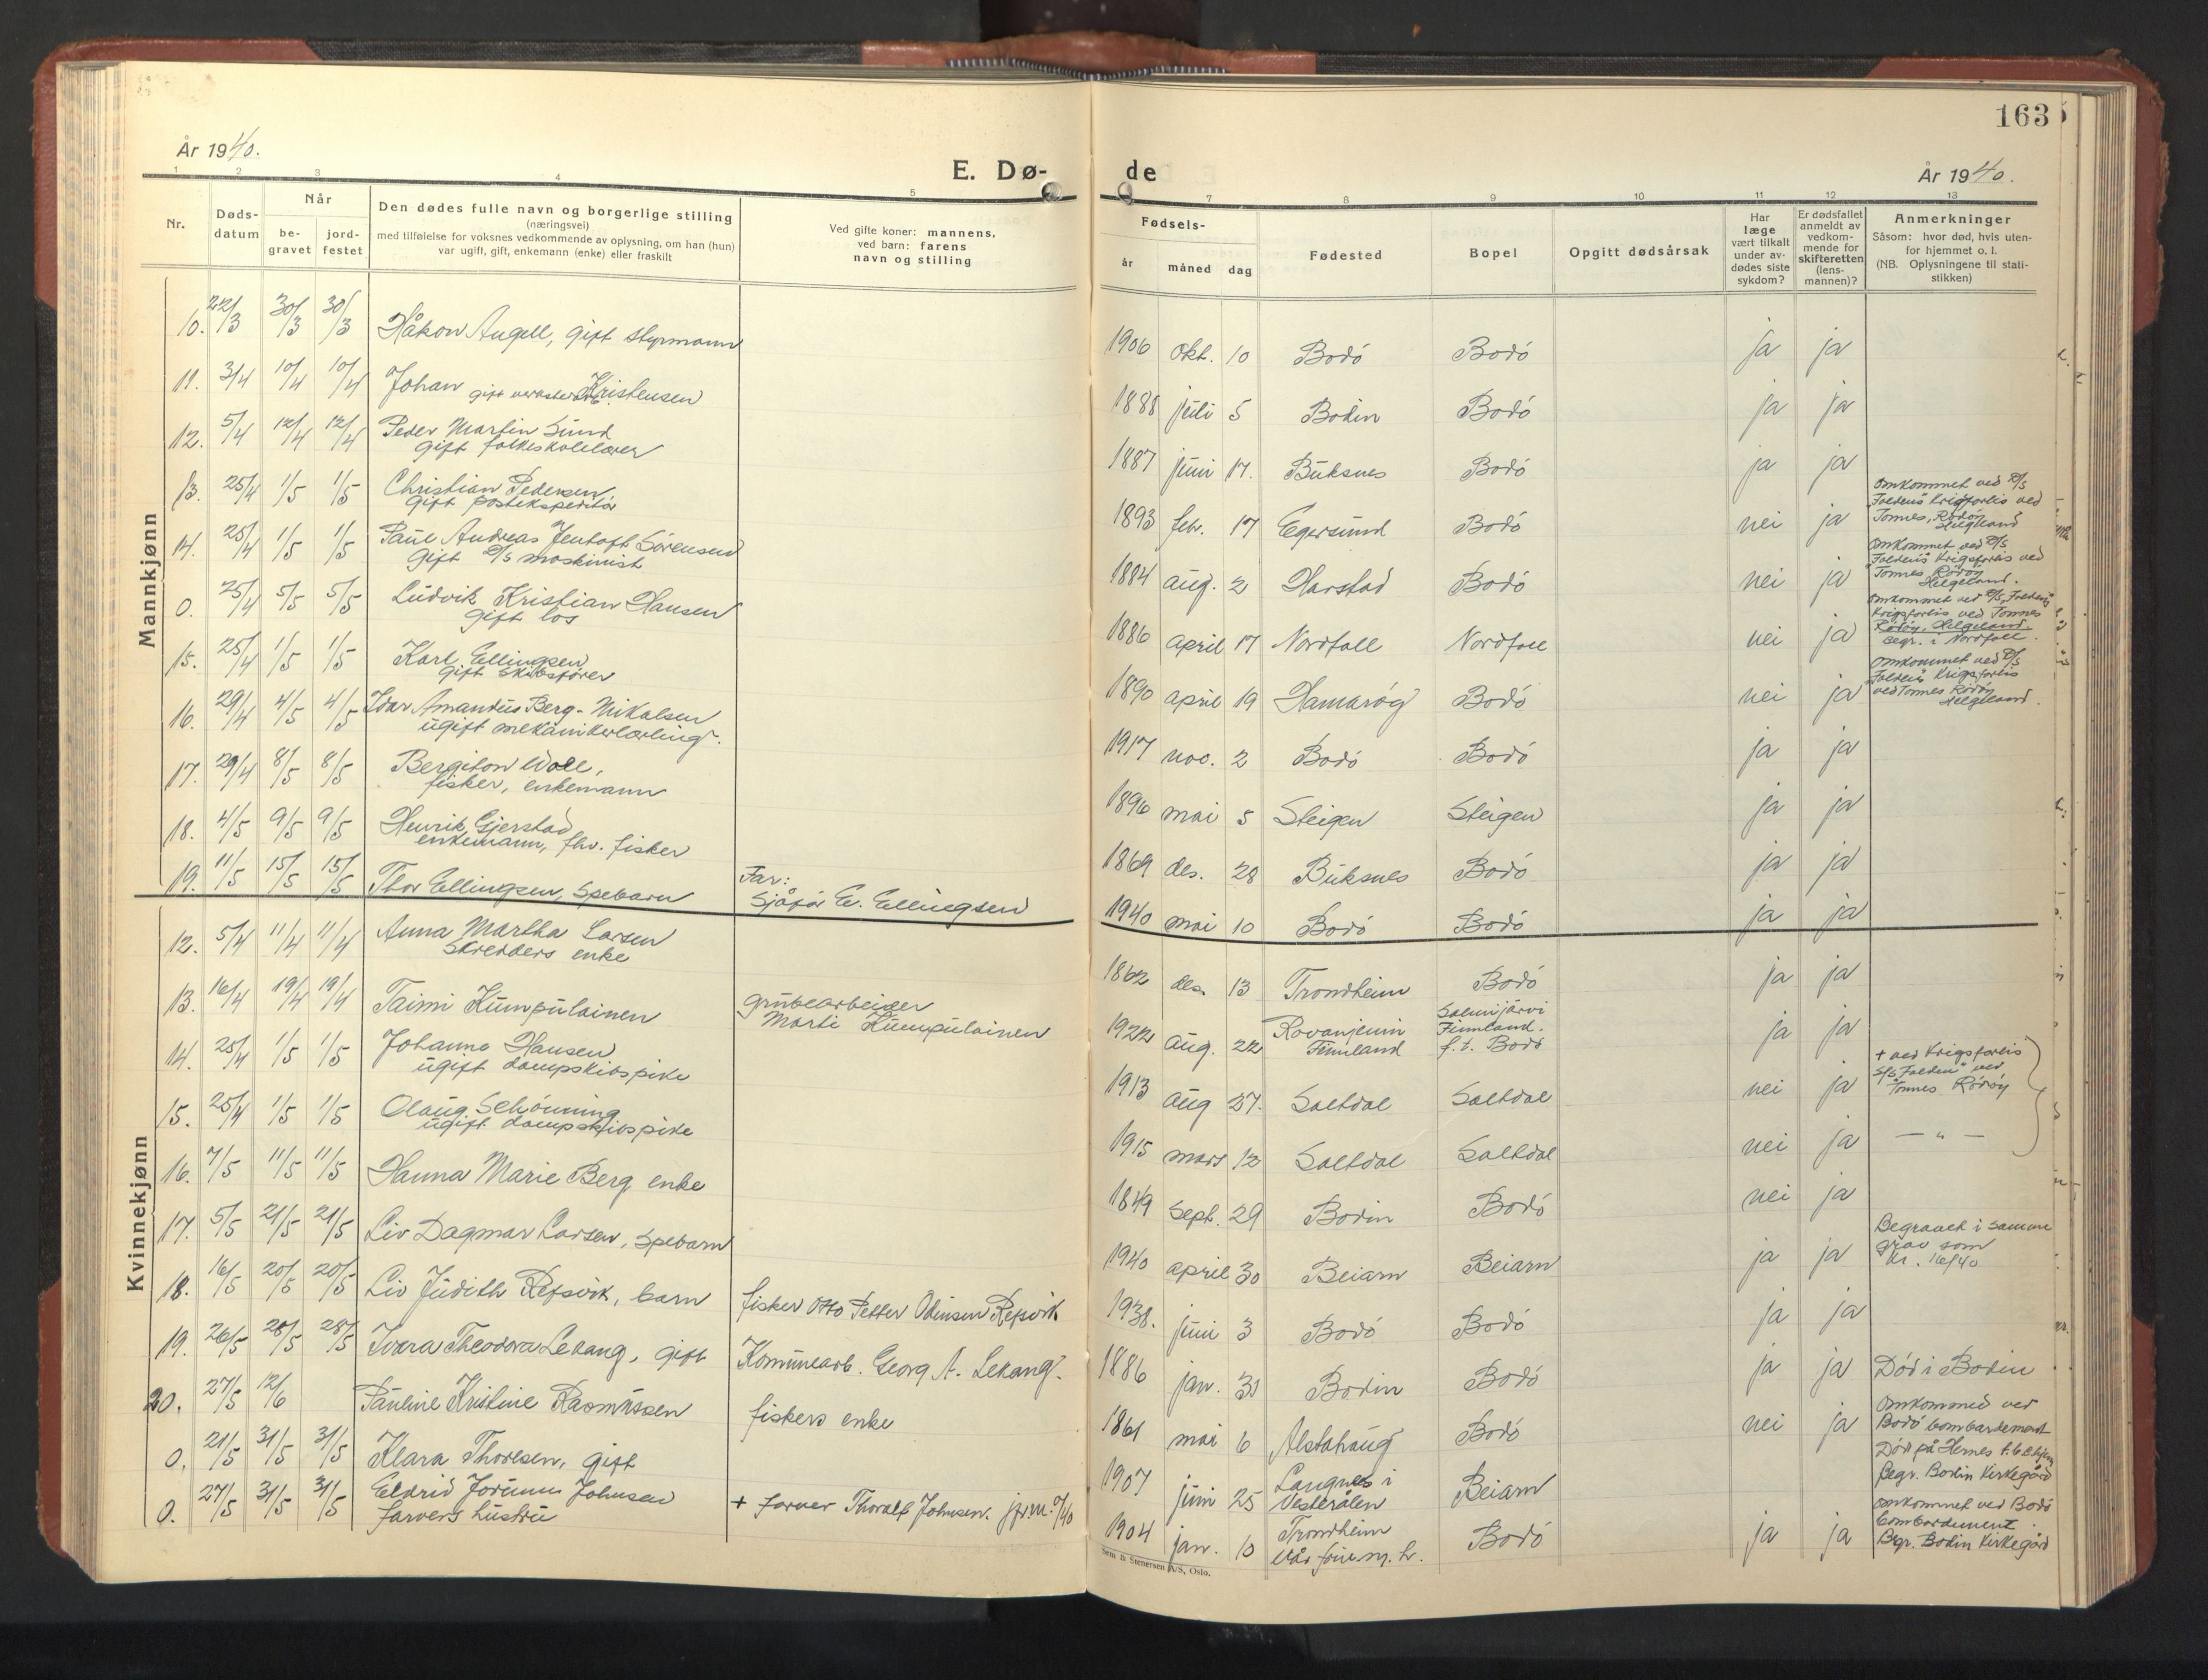 163
År 1940.
E. Dø-
de
År 1940.
1 2 3 4 5 7 8 9 10 11 12 13
Nr.
Døds-
datum
Når
be-
gravet
jord-
festet
Den dødes fulle navn og borgerlige stilling
(næringsvei)
med tilføielse for voksnes vedkommende av oplysning, om han (hun)
var ugift, gift, enkemann (enke) eller fraskilt
Ved gifte koner: mannens,
ved barn: farens
navn og stilling
Fødsels-
år måned dag
Fødested
Bopel
Opgitt dødsårsak
Har
læge
vært tilkalt
under av-
dødes siste
sykdom?
Er dødsfallet
anmeldt av
vedkom-
mende for
skifteretten
(lens-
mannen)?
Anmerkninger
Såsom: hvor død, hvis uten-
for hjemmet o. l.
(NB. Oplysningene til stati-
stikken)
Mannkjønn
10. 22/3 30/3 30/3 Håkon Angell, gift styrmann 1906 okt. 10 Bodó Bodó ja ja
11. 3/4 10/4 10/4 Johan Kristensen
gift
1888 juli 5 Bodin Bodó ja ja
12. 5/4 12/4 12/4 Peder Martin Sund
gift folkeskolelærer
1887 juni 17. Buksnes Bodó ja ja
13. 25/4 1/5 1/5 Christian Pedersen
gift postekspeditór
1893 febr. 17 Egersund Bodó nei ja
Omkommet ved D/S
"Foldens" krigsforlis ved
Tonnes, Rödöy
Helgeland
14. 25/4 1/5 1/5 Paul Andreas Jentoft Sörensen
gift D/S maskinist
1884 aug. 2 Harstad Bodó nei ja
Omkommet ved D/S
"Foldens" Krigsforlis ved
Tonnes Rödöy
Helgeland.
0. 25/4 5/5 5/5 Ludvik Kristian Hansen
gift los
1886 april 17 Nordfoll Nordfoll nei ja
Omkommet ved D/S "Foldens"
Krigsforlis ved Tonnes
Rödöy, Helgeland.
Begr. i Nordfoll.
15. 25/4 1/5 1/5 Karl Ellingsen
gift skibsfører
1890 april 19 Hamarøy Bodó nei ja
Omkommet ved D/S
"Foldens" Krigsforlis
ved Tonnes Rödöy
Helgeland.
16. 29/4 4/5 4/5 Ivar Amandus Berg-Nikolsen
ugift mekanikerlærling.
1917 nov. 2 Bodó Bodó ja ja
17. 29/4 8/5 8/5 Bergiton Woll,
fisker, enkemann
1896 mai 5 Steigen Steigen ja ja
18. 4/5 9/5 9/5 Henrik Gjerstad
enkemann, fhv. fisker
1869 des. 28 Buksnes Bodó ja ja
19. 11/5 15/5 15/5 Thor Ellingsen, spebarn
Far:
Sjåfór E. Ellingsen
1940 mai 10 Bodó Bodó ja ja
Kvinnekjønn
12. 5/4 11/4 11/4 Anna Martha Larsen
Skredders enke
1862 des. 13 Trondheim Bodó ja ja
13. 16/4 19/4 19/4 Taimi Kumpulainen
grubearbeider
Marti Kumpulainen
1922 aug. 22 Rovanjemi
Finnland
Salmijärvi
Finnland.
f. t. Bodó
ja ja
14. 25/4 1/5 1/5 Johanne Hansen
ugift dampskibspike
1913 aug 27. Saltdal Saltdal nei ja
+ ved Krigsforlis
S/S "Folden" ved
Tonnes Rödöy
15. 25/4 1/5 1/5 Olaug Schönning
ugift dampskibspike
1915 mars 12 Saltdal Saltdal nei ja
— " —
16. 7/5 11/5 11/5 Hanna Marie Berg enke 1849 Sept. 29 Bodin Bodó nei ja
17. 5/5 21/5 21/5 Liv Dagmar Larsen, spebarn 1940 april 30 Beiarn Beiarn ja ja
Begravet i samme
grav som
nr. 16/40
18. 16/5 20/5 20/5 Liv Judith Refsvik, barn fisker Otto Petter Odinsen Refsvik 1938. juni 3 Bodó Bodó ja ja
19. 26/5 28/5 28/5 Ivara Theodora Lekang, gift Kommunearb. Georg A. Lekang. 1886 jan. 31 Bodin Bodó ja ja Död i Bodin
20. 27/5 12/6 Pauline Kristine Rasmussen fiskers enke 1861 mai 6 Alstahaug Bodó nei ja
Omkommed ved
Bodó bombardement
0. 21/5 31/5 31/5 Klara Thoresen, gift 1907 juni 25 Langnes i
Vesterålen
Beiarn
Död på Hernes
Begr. Bodin Kirkegård
0. 27/5 31/5 31/5 Eldrid Jorunn Johnsen
farvers hustru
+ farver Thoralf Johnsen.
1904 jan. 10 Trondheim
Vår frue m. h.
Bodó ja ja
Omkommet ved Bodó
bombardement.
Begr. Bodin Kirkegård
Sem & Stenersen A/S, Oslo.